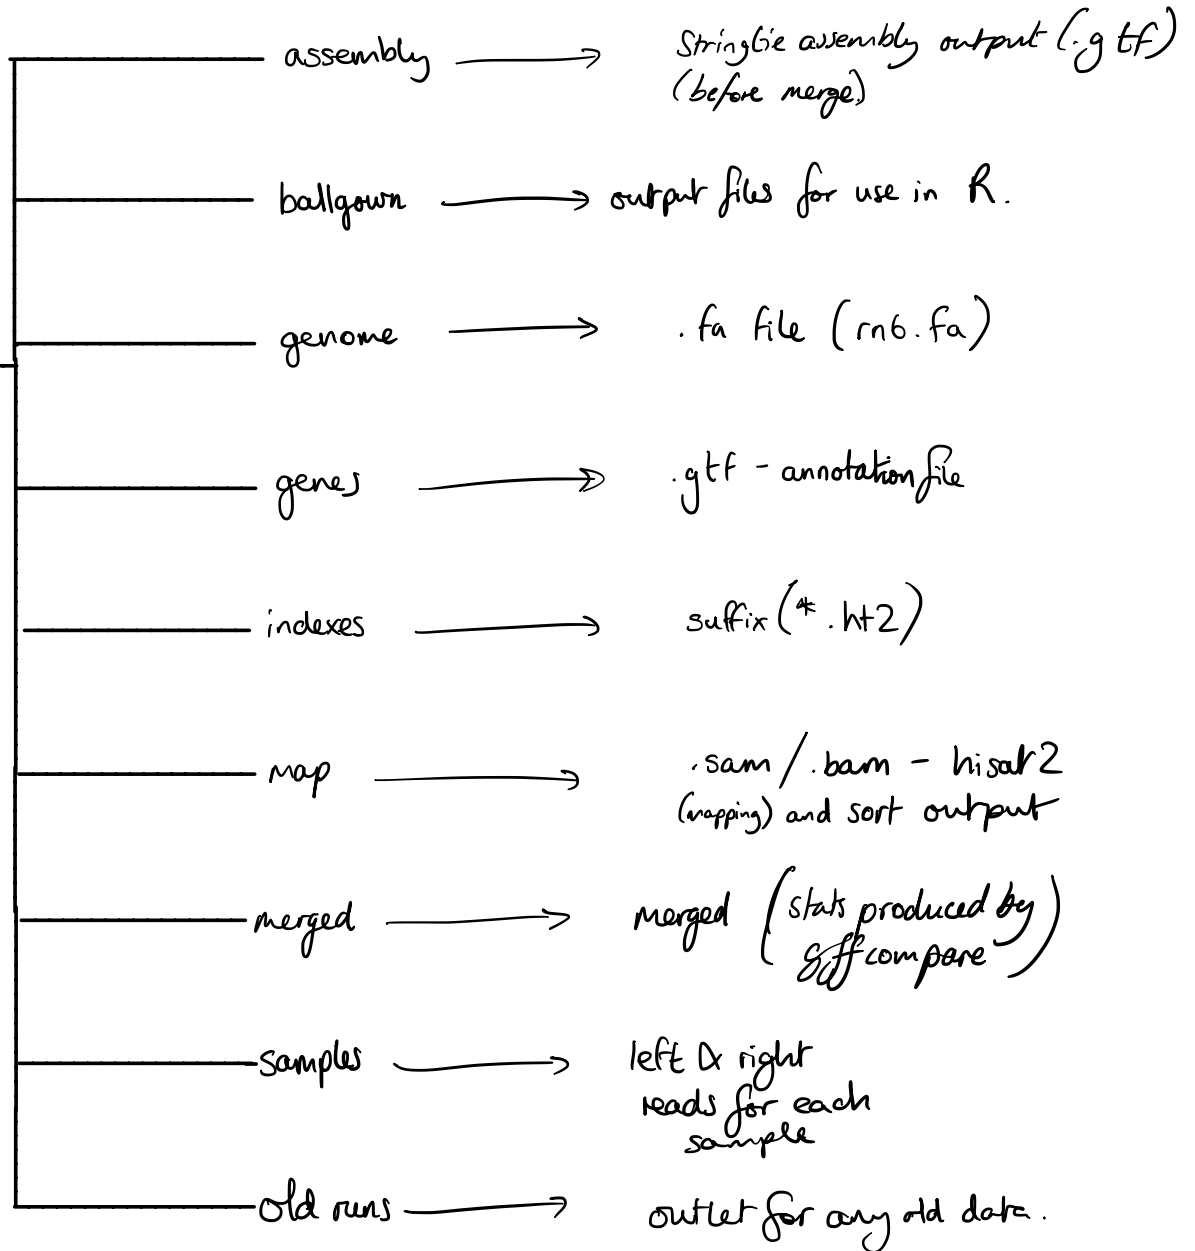 assembly Stringtie assembly output (.gtf)
(before merge)
ballgown output files for use in R.
genome .fa file (rn6.fa)
genes .gtf - annotation file
indexes suffix (*.ht2)
map .sam/.bam - hisat2
(mapping) and sort output
merged merged (stats produced by
gffcompare)
samples left & right
reads for each
sample
old runs outlet for any old data.